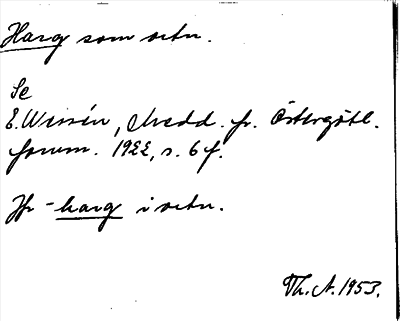 Harg som ortn.
Se
E. Wessén, Medd. fr. Östergötl.
fornm. 1922, s. 6 f.
Jfr -harg i ortn.
Th. A. 1953.